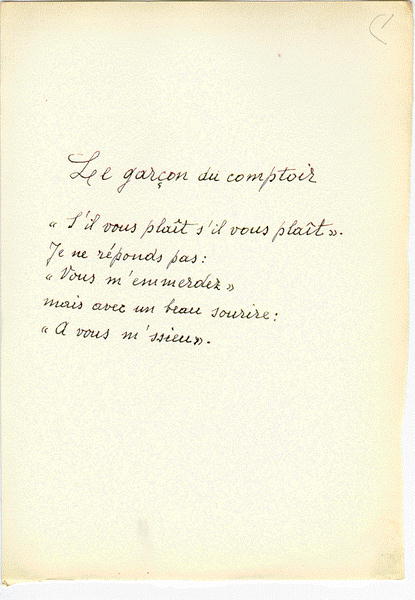 Le garçon du comptoir
« S'il vous plaît s'il vous plaît ».
Je ne réponds pas :
« Vous m'emmerdez »
mais avec un beau sourire :
« A vous m'ssieu ».